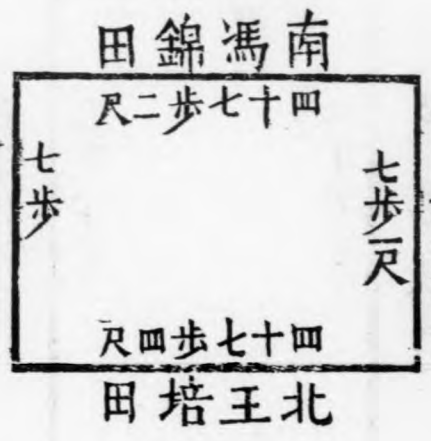 南馮錦田
四十七步二尺
七步一尺
七步
四十七步四尺
北王培田